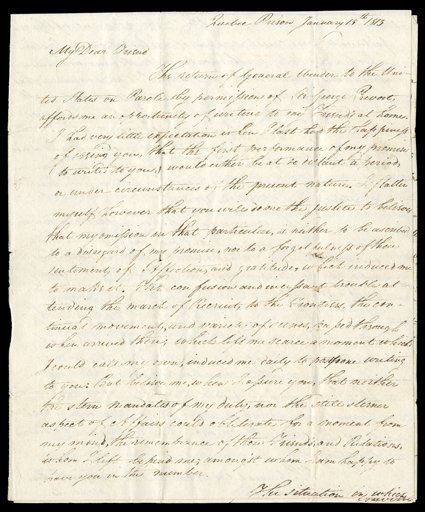 Quebec Prison January 15th 1813
My Dear Friend
The return of General Winder to the Uni-
ted States on Parole, by permission of Sir George Prevost,
affords me an opportunity of writing to my Friends at home.
I had very little expectation when I last had the happiness
of seeing you, that the first performance of my promise
to write to you, would either be at so distant a period,
or under circumstances of the present nature. I flatter
myself however that you will do me the justice to believe,
that my omission in that particular, is neither to be ascribed
to a disregard of my promise, nor to a forgetfulness of those
sentiments of affection, and gratitude, which induced me
to make it. The confusion and incessant trouble at-
tending the march of Recruits to the Frontiers, the con-
tinual movement, and variety of scenes, passed through
when arrived there; which left me scarce a moment which
I could call my own, induced me daily to postpone writing
to you; But believe me, when I assure you, that neither
the stern mandates of my duty, nor the still sterner
aspect of Affairs could obliterate for a moment from
my mind, the remembrance of those Friends, and Relations,
whom I left behind me; amongst whom I am happy to
have you in the number.
The situation in which